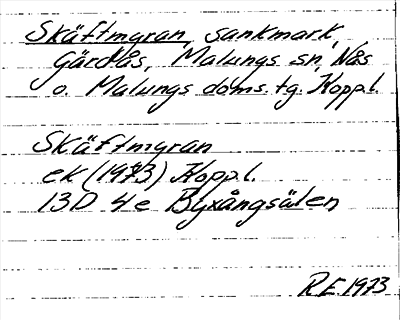 Skäftmyran, sankmark,
Gärdås, Malungs sn, Nås
o. Malungs doms.tg. Koppl.
Skäftmyran
ek (1973) Koppl.
13D 4e Byxångsälen
R.E. 1973